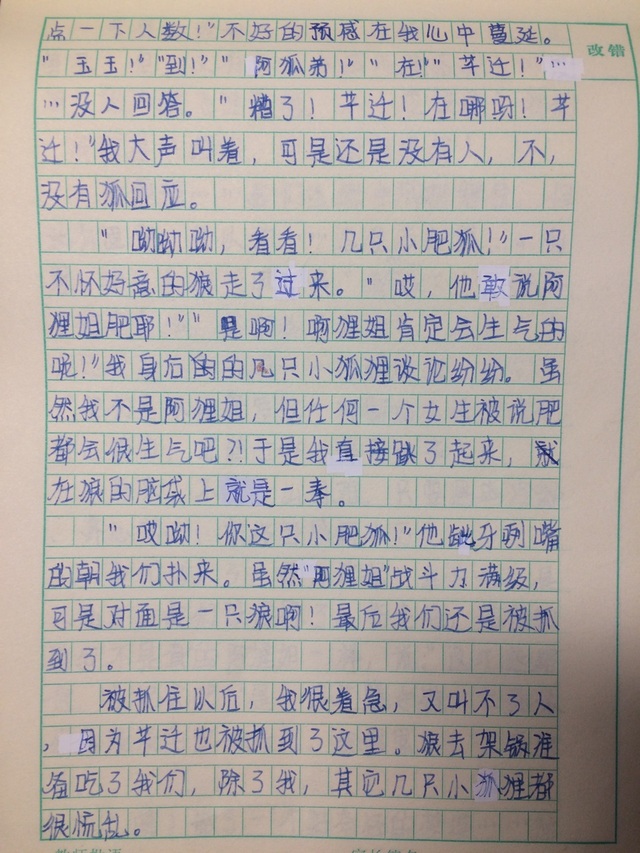 点一下人数！"不好的预感在我心中蔓延。
改错
"玉玉！""到！""阿狐弟！""在！""芊迁！"…
…没人回答。"糟了！芊迁！在哪呀！芊
迁！"我大声叫着，可是还是没有人，不，
没有狐回应。
"呦呦呦，看看！几只小肥狐！"一只
不怀好意的狼走了过来。"哎，他敢说阿
狸姐肥耶！""是啊！啊狸姐肯定会生气的
呢！"我身后的的几只小狐狸谈论纷纷。虽
然我不是阿狸姐，但任何一个女生被说肥
都会很生气吧？！于是我直接跳了起来，就
在狼的脑袋上就是一拳。
"哎呦！你这只小肥狐！"他龇牙咧嘴
的朝我们扑来。虽然"阿狸姐"战斗力满级，
可是对面是一只狼啊！最后我们还是被抓
到了。
被抓住以后，我很着急，又叫不了人
，因为芊迁也被抓到了这里。狼去架锅准
备吃了我们，除了我，其它几只小狐狸都
很慌乱。